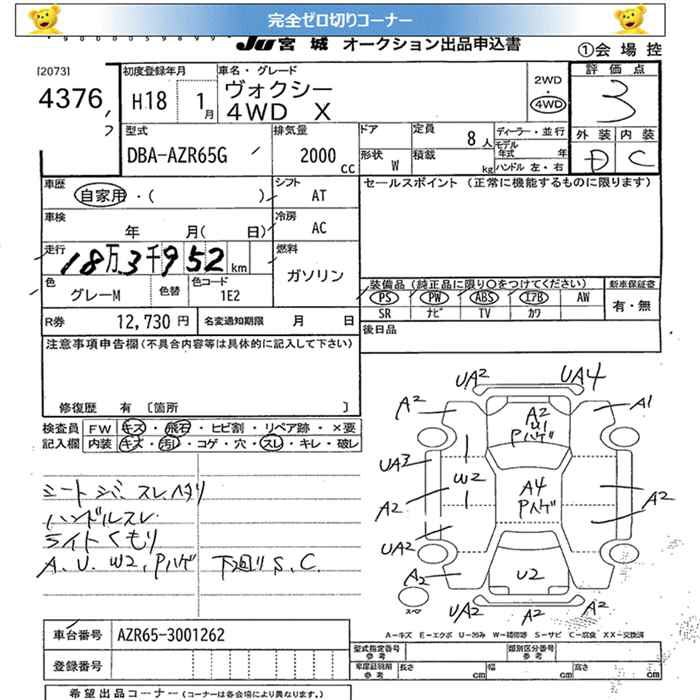 完全ゼロ切りコーナー
JU宮城 オークション出品申込書
①会場控
[2073]
4376
初度登録年月
H18 1月
車名・グレード
ヴォクシー
4WD X
2WD
・
4WD
評価点
3
外装 内装
D C
型式
DBA-AZR65G
排気量
2000 cc
ドア
定員 8人
ディーラー・並行
モデル年式 年
形状 W
積載 kg
ハンドル 左・右
車歴
自家用・( )
シフト
AT
セールスポイント (正常に機能するものに限ります)
車検
年 月( 日)
冷房
AC
走行
18万3千952km
燃料
ガソリン
色
グレーM
色替
色コード
1E2
装備品(純正品に限り○をつけてください)
PS PW ABS エアB AW
SR ナビ TV カワ
新車保証書
有・無
R券 12,730円
名変通知期限 月 日
後日品
注意事項申告欄(不具合内容等は具体的に記入して下さい)
修復歴 有 〔箇所 〕
検査員 FW キズ・飛石・ヒビ割・リペア跡・×要
記入欄 内装 キズ・汚れ・コゲ・穴・スレ・キレ・破レ
シート シミ、スレ、ヘタリ
ハンドルスレ
ライトくもり
A、U、W2、Pハゲ 下廻り S、C.
UA2 UA4
A2 A2 A1
U1
Pハゲ
UA3 W2 A4
A2 Pハゲ A2
UA2
A2 U2 A2
スペア
UA2 A2 A2
A−キズ E−エクボ U−凹み W−補修跡 S−サビ C−腐食 XX−交換済
車台番号 AZR65-3001262
登録番号
型式指定番号 参考
類別区分番号 参考
車庫証明用 参考 長さ cm 幅 cm 高さ cm
希望出品コーナー(コーナーは各会場により異なります。)